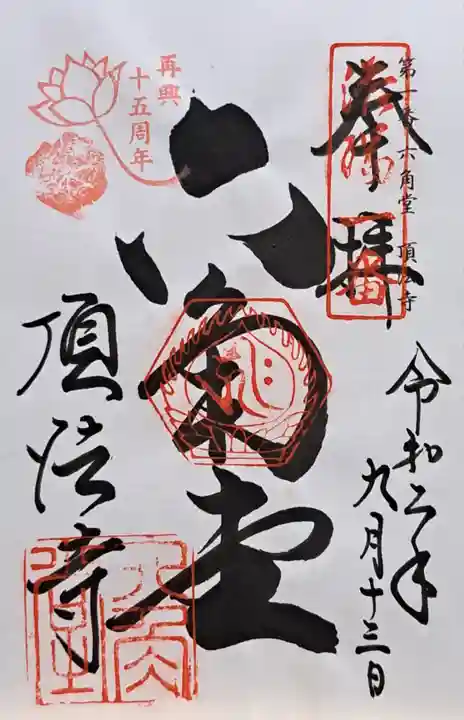 第一番 六角堂 頂法寺
奉拝
洛陽第一番
令和二年
九月十三日
六角堂
再興
十五周年
頂法寺